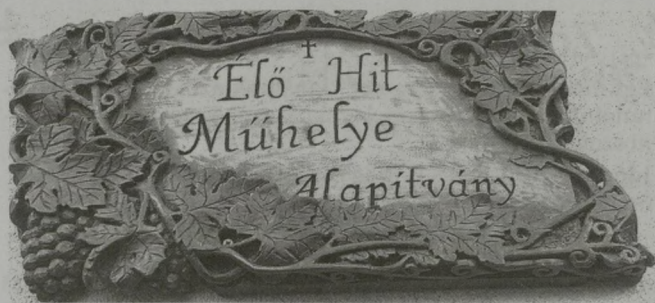 Élő Hit
Műhelye
Alapítvány